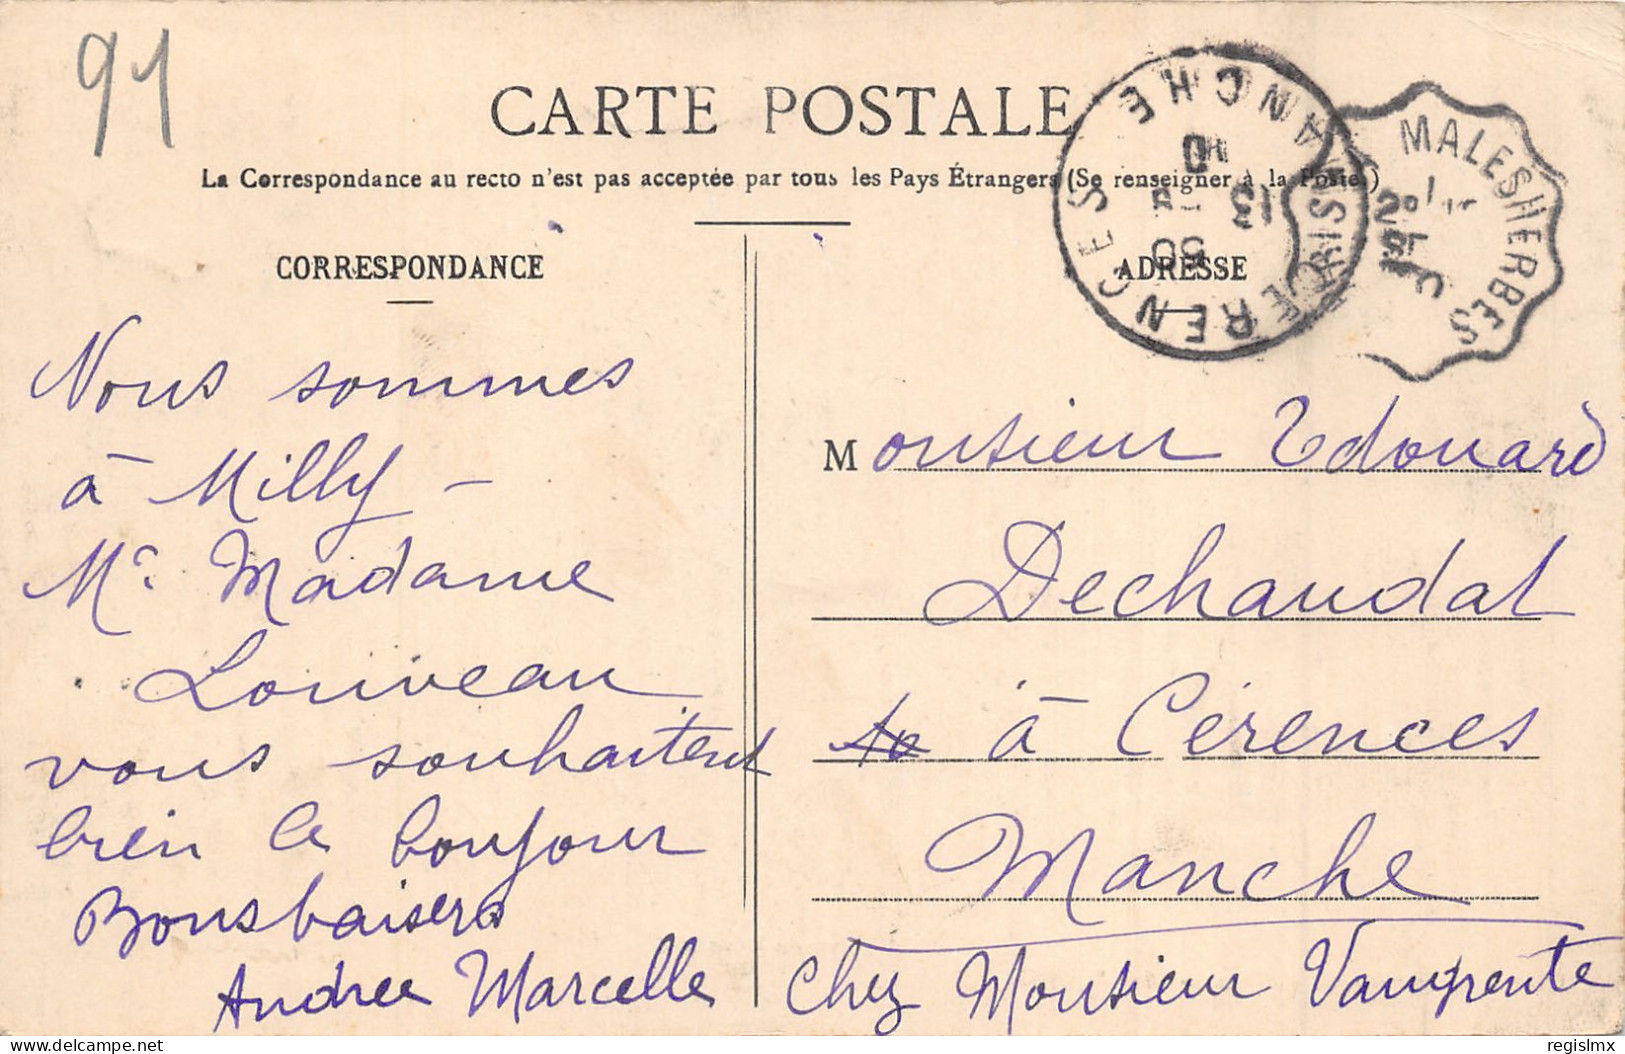 91
CARTE POSTALE
La Correspondance au recto n'est pas acceptée par tous les Pays Étrangers (Se renseigner à la Poste)
CORRESPONDANCE
Nous sommes
à Milly -
Mr Madame
Louveau
vous souhaitent
bien le bonjour
Bons baisers
Andree Marcelle
ADRESSE
Monsieur Edouard
Dechaudat
à Cérences
Manche
Chez Monsieur
CERENCES MANCHE
13
MALESHERBES
delcampe.net
regislmx